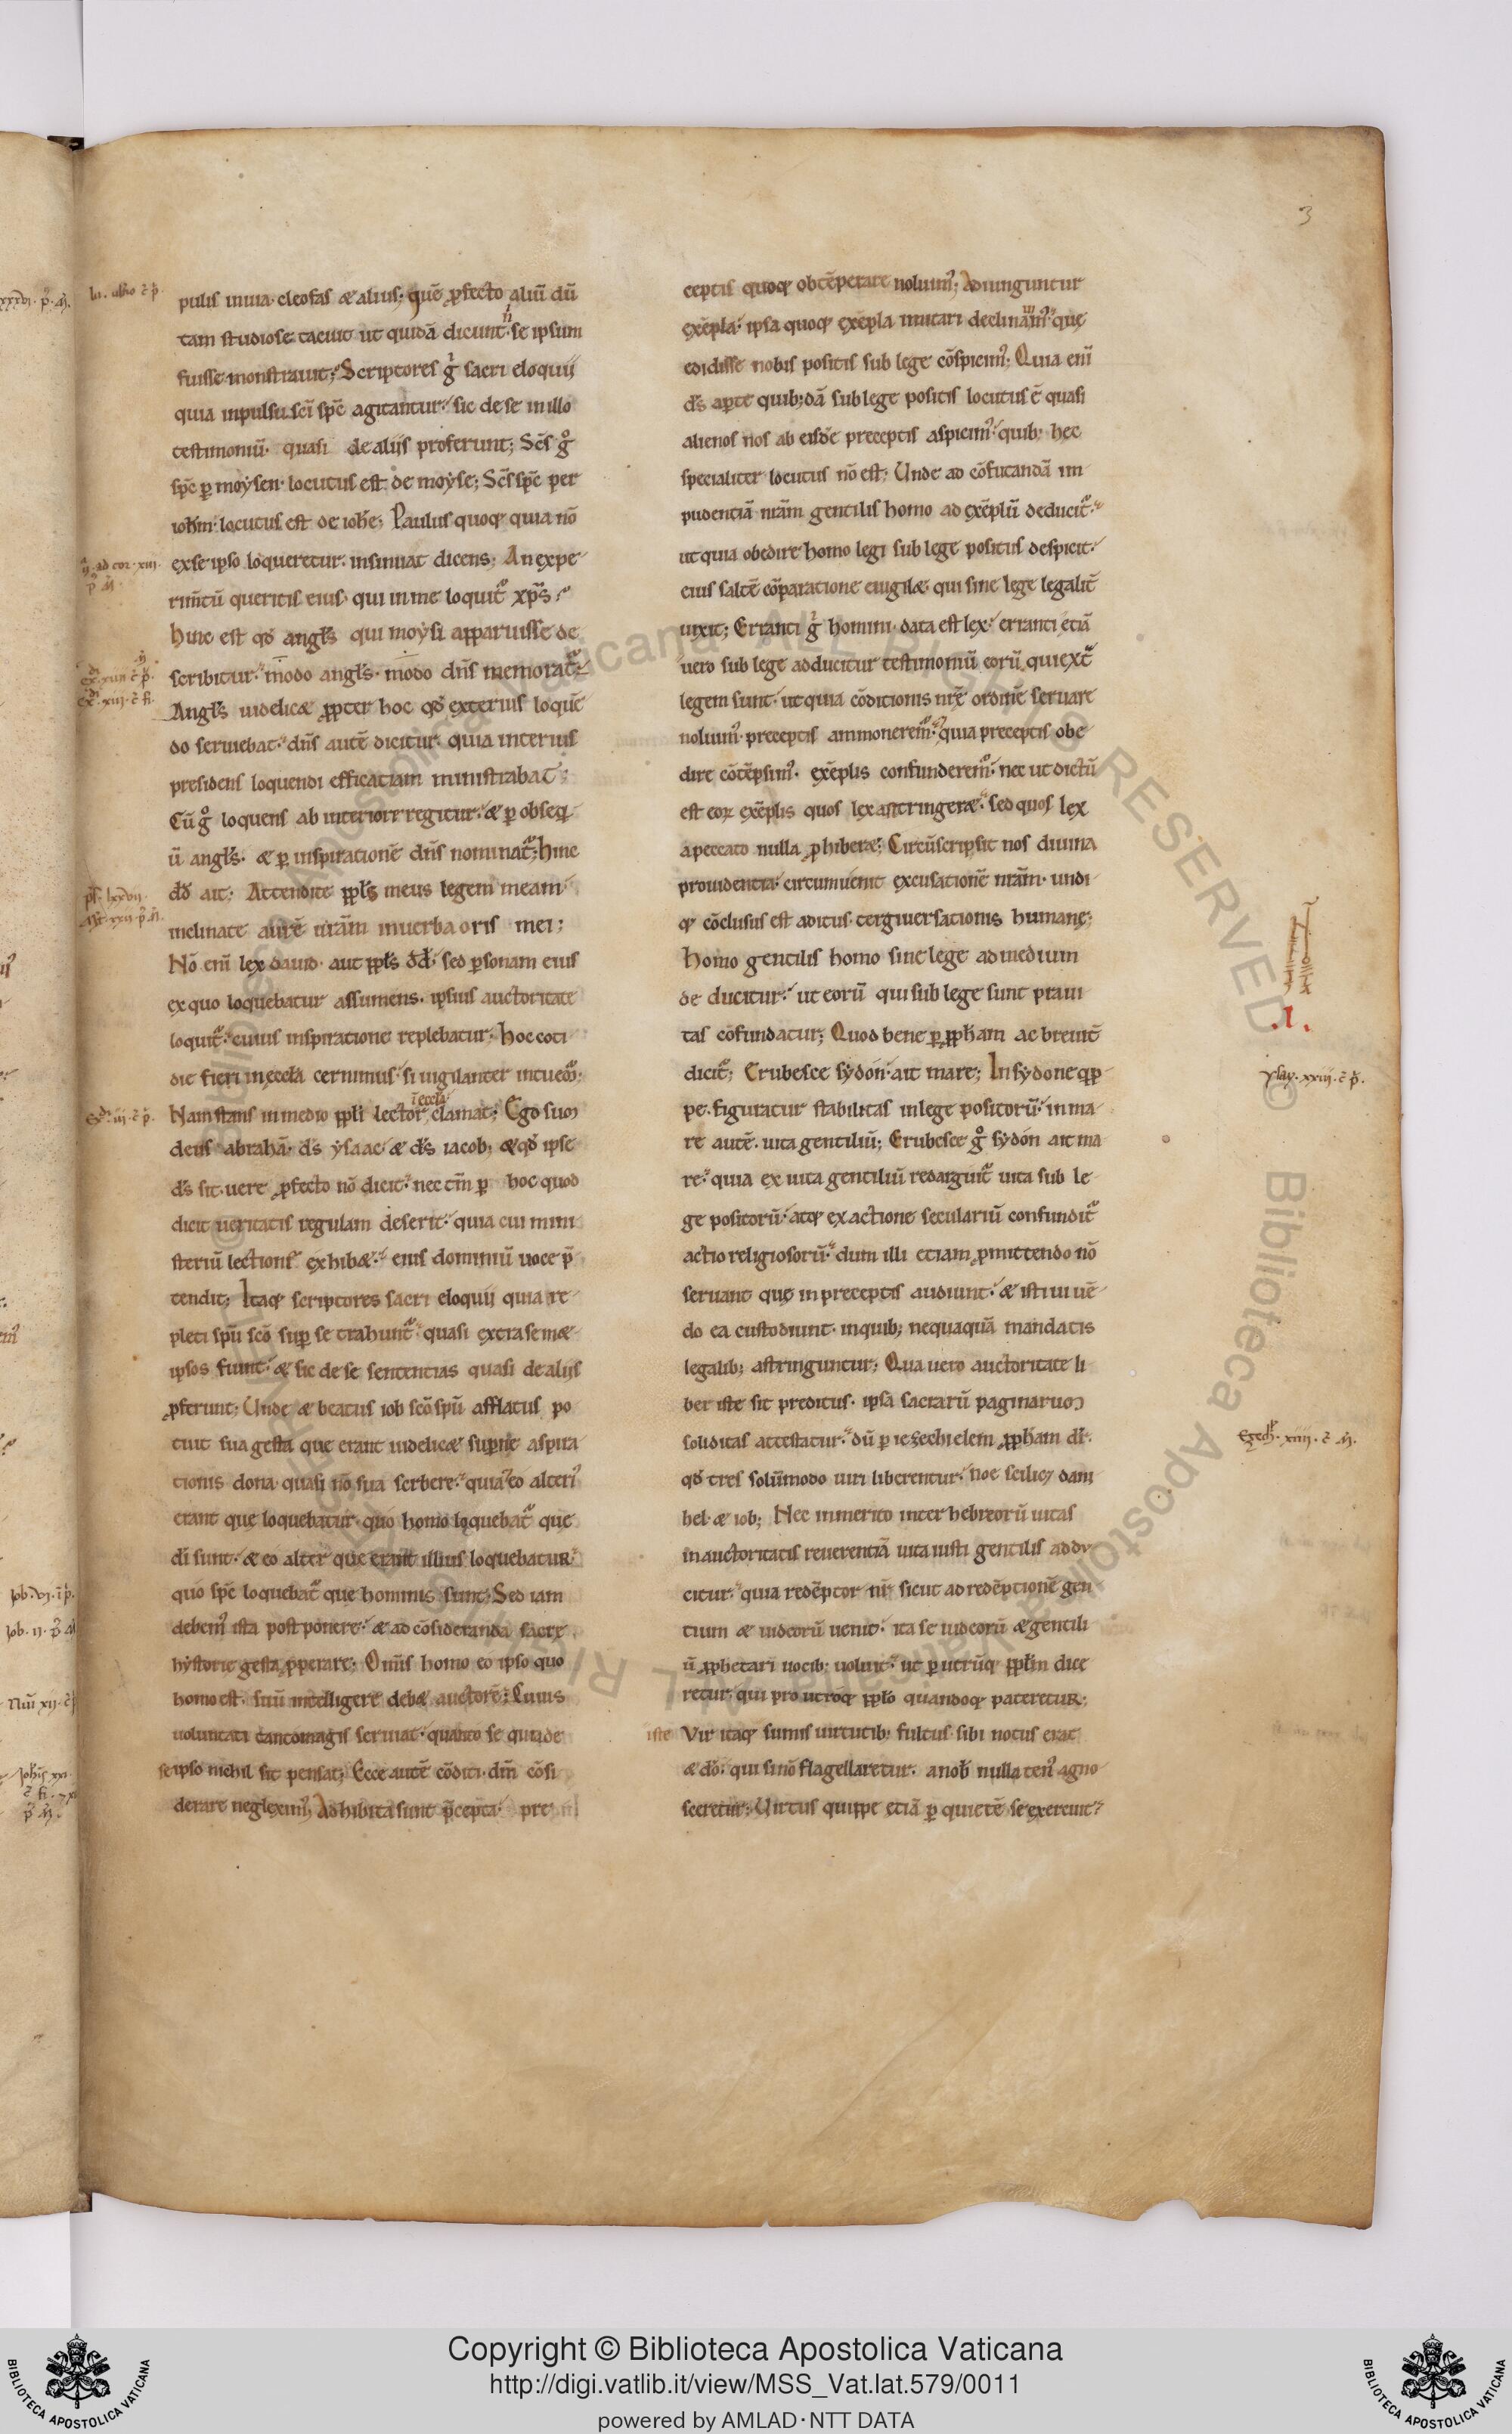 3
pulis in uia· cleofas & alius; quē ꝓfecto aliū dū
tam studiose tacuit ut quidā dicunt· n̄ se ipsum
fuisse monstrauit; Scriptores g̊ sacri eloquii
quia inpulsu sc̄i sp̄c agitantur· sic de se in illo
testimoniū· quasi de aliis proferunt; Sc̄s g̊
sp̄c ꝑ moẏsen· locutus est de moẏse; Sc̄s sp̄c per
ioħm· locutus est de ioħe; Paulus quoqꝫ quia nō
ex se ipso loqueretur· insinuat dicens; An expe
rim̄tū queritis eius· qui in me loquit᷑ xp̄s·
Hinc est qd̄ angl̄s qui moẏsi apparuisse de
scribitur· modo angl̄s· modo dn̄s memorat᷑·
Angl̄s uidelic& ꝓpter hoc qd̄ exterius loquē
do seruiebat· dn̄s autē dicitur· quia interius
presidens loquendi efficatiam ministrabat;
Cū g̊ loquens ab interiori regitur· & ꝑ obseq
ū angl̄s· & ꝑ inspirationē dn̄s nominat᷑; Hinc
dd̄ ait; Attendite ppl̄s meus legem meam·
inclinate aurē ur̄am in uerba oris mei;
Nō eni lex dauid· aut ppl̄s dd̄· sed ꝑsonam eius
ex quo loquebatur assumens· ipsius auctoritate
loquit᷑· cuius inspiratione replebatur; Hoc coti
die fieri in ęccl̄a cernimus· si uigilanter intuem̄;
Nam stans in medio ppl̄i lector ī eccl̄a clamat; Ego sum
deus abrahā· ds̄ ẏsaac· & ds̄ iacob; & qd̄ ipse
ds̄ sit· uere ꝓfecto nō dicit· nec tm̄ ꝑ hoc quod
dicit ueritatis regulam deserit· quia cui mini
steriū lectionis exhib&· eius dominiū uoce p̄
tendit; Itaqꝫ scriptores sacri eloquii quia re
pleti sp̄u sc̄o sup̄ se trahunt᷑· quasi extra sem&
ipsos fiunt· & sic de se sententias quasi de aliis
ꝓferunt; Unde & beatus iob sc̄o sp̄u afflatus po
tuit sua gesta que erant uidelic& sup̄ne aspira
tionis dona· quasi nō sua scribere· quia eo alteri᷒
erant que loquebatur· quo homo loquebat᷑ que
dī sunt· & eo alter que erant illius loquebatur·
quo sp̄c loquebat᷑ que hominis sunt; Sed iam
debem᷒ ista postponere· & ad cōsideranda sacrę
hẏstorie gesta ꝓperare; Omīs homo eo ipso quo
homo est· suū intelligere deb& auctorē; Cuius
uoluntati tanto magis seruiat· quanto se quia de
se ipso nichil sit pensat; Ecce autē cōditi· dm̄ cōsi
derare neglexim᷒; Adhibita sunt p̄cepta· pre
ceptis quoqꝫ obtēperare noluim᷒; Adiunguntur
exēpla· ipsa quoqꝫ exēpla imitari declinam᷒· que
edidisse nobis positis sub lege cōspicim᷒; Quia enī
ds̄ aꝑte quib;dā sub lege positis locutus ē quasi
alienos nos ab eisdē preceptis aspicim᷒· quib; hec
specialiter locutus nō est; Unde ad cōfutandā im
pudentiā nr̄am gentilis homo ad exēplū deducit᷑·
ut quia obedire homo legi sub lege positus despicit·
eius saltē cōparatione euigil&· qui sine lege legalit᷑
uixit; Erranti g̊ homini· data est lex· erranti etiā
uero sub lege adducitur testimoniū eorū qui ext᷑
legem sunt· ut quia cōditionis nr̄ę ordinē seruare
noluim᷒· preceptis ammoneremur· quia preceptis obe
dire cōtēpsim᷒· exēplis confunderem᷒· nec ut dictū
est eoꝝ exēplis quos lex astringer&· sed quos lex
a peccato nulla ꝓhiber&; Circūscripsit nos diuina
prouidentia· circumuenit excusationē nr̄am· undi
qꝫ cōclusus est aditus· tergiuersationis humanę;
Homo gentilis homo sine lege ad medium
de ducitur· ut eorū qui sub lege sunt praui
tas cōfundatur; Quod bene ꝑ ꝓpham ac breuit᷑
dicit᷑; Erubesce sẏdon· ait mare; In sẏdone qp
pe· figuratur stabilitas in lege positorū· in ma
re autē· uita gentiliū; Erubesce g̊ sẏdon ait ma
re· quia ex uita gentiliū redarguit᷑ uita sub le
ge positorū· atqꝫ ex actione seculariū confundit᷑
actio religiosorū· dum illi etiam ꝓmittendo nō
seruant quę in preceptis audiunt· & isti uiuē
do ea custodiunt· in quib; nequaquā mandatis
legalib; astringuntur; Qua uero auctoritate li
ber iste sit preditus· ipsa sacrarū paginarum
soliditas attestatur· dū ꝑ iezechielem ꝓpham dr̄·
qd̄ tres solūmodo uiri liberentur· noe scilicꝫ dani
hel· & iob; Nec inmerito inter hebreorū uitas
in auctoritatis reuerentiā uita iusti gentilis addu
citur· quia redēptor nr̄· sicut ad redēptionē gen
tium & iudeorū uenit· ita se iudeorū & gentili
ū ꝓphetari uocib; uoluit· ut ꝑ utrūqꝫ ppl̄m dice
retur· qui pro utroqꝫ ppl̄o quandoqꝫ pateretur;
iste Vir itaqꝫ sumis uirtutib; fultus· sibi notus erat
& dō· qui si nō flagellaretur· a nob̄ nulla ten᷒ agno
sceretur; Uirtus quippe etiā ꝑ quietē se exercuit·
.I.
Ysay· xxiii· c̄ p̄.
Ezech· xiiii· c̄ m̄.
© Biblioteca Apostolica Vaticana ALL RIGHTS RESERVED
Copyright © Biblioteca Apostolica Vaticana
http://digi.vatlib.it/view/MSS_Vat.lat.579/0011
powered by AMLAD·NTT DATA
BIBLIOTECA APOSTOLICA VATICANA
BIBLIOTECA APOSTOLICA VATICANA